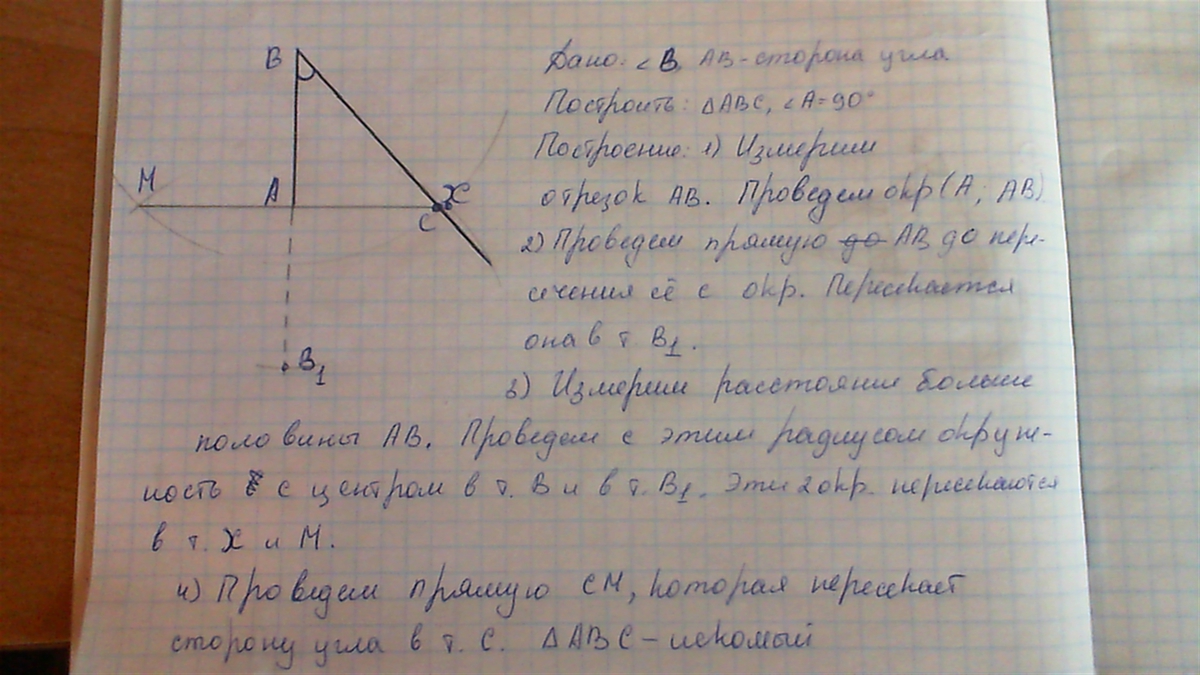 B
M
A
X
C
B₁
Дано: ∠B, AB-сторона угла
Построить: △ABC, ∠A=90°
Построение: 1) Измерим
отрезок AB. Проведем окр(A; AB)
2) Проведем прямую до AB до пере-
сечения её с окр. Пересекается
она в т. B₁.
3) Измерим расстояние больше
половины AB. Проведем с этим радиусом окруж-
ность с центром в т. B и в т. B₁. Эти 2 окр. пересекаются
в т. X и M.
4) Проведем прямую CM, которая пересекает
сторону угла в т. C. △ABC – искомый